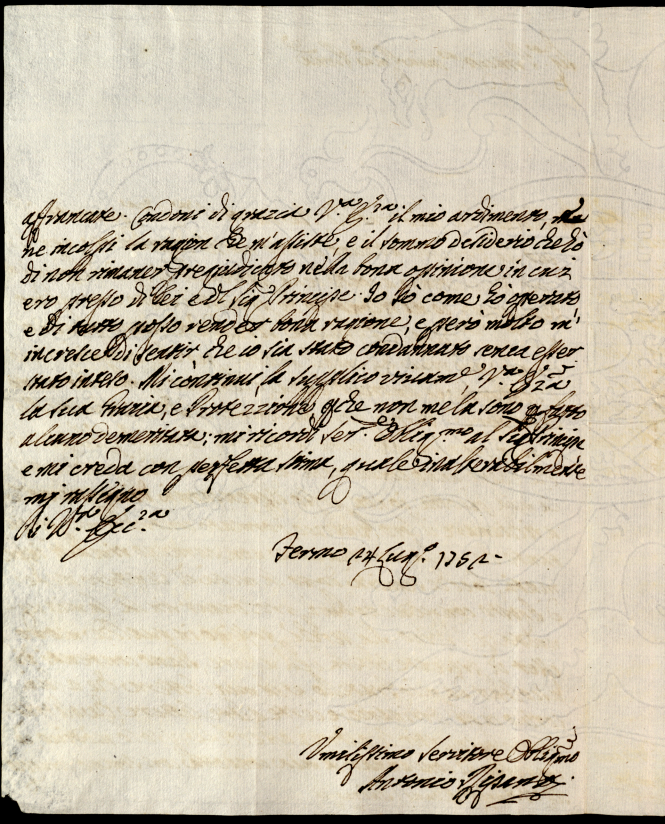 affrancare. Condoni di grazia V.ra Ecc.za il mio ardimento, me
ne incolpi la ragion che m'assiste, e il sommo desiderio che hò
di non rimaner pregiudicato nella bona opinione in cui
ero presso di Lei e del Sig.r Principe. Io sò come hò operato
e di tutto posso render bona ragione, e però molto m'
incresce di sentir che io sia stato condannato senza esser
stato inteso. Mi continui la supplico vivam.e V.ra Ecc.za
la sua Grazia, e Protezzione, che non me la sono per fatto
alcuno demeritata; mi ricordi Ser.e Oblig.mo al Sig.r Principe
e mi creda con perfetta stima, quale inalterabilmente
mi rassegno
Di V.ra Ecc.za
Fermo 24 Lug.o 1752
Umilissimo Servitore Oblig.mo
Antonio